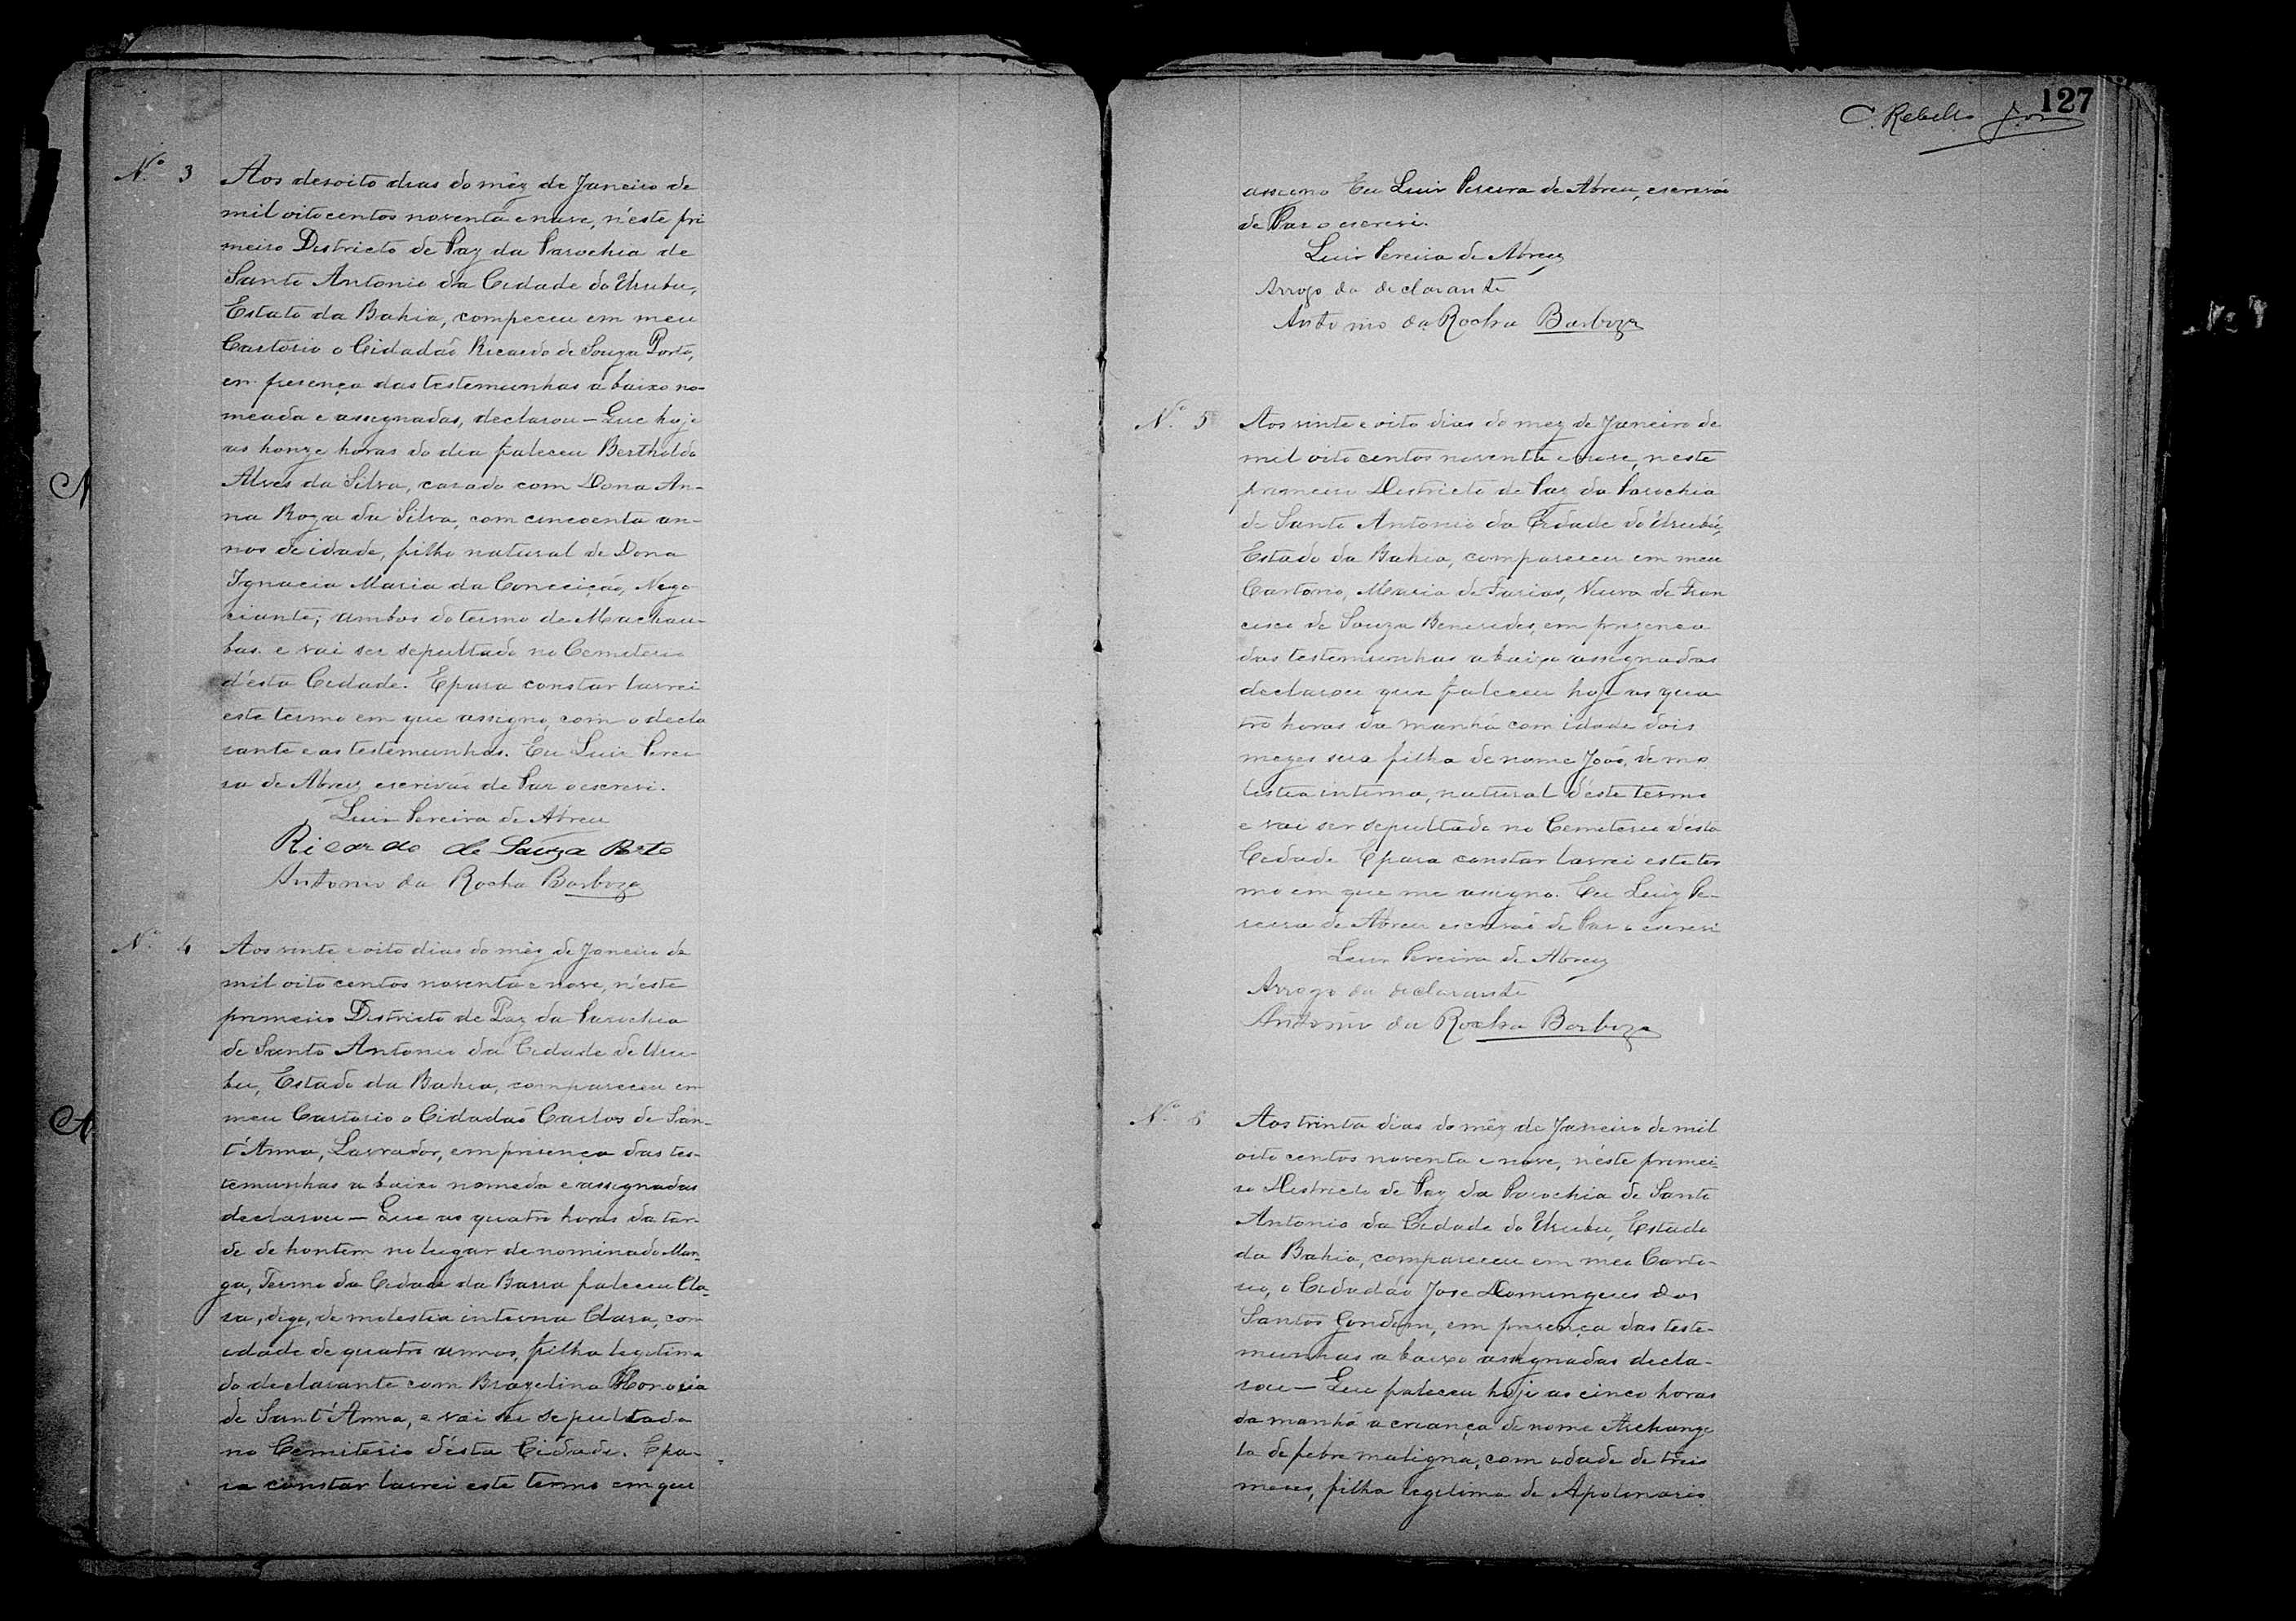 Nº 3
Aos desoito dias do mêz de Janeiro de
mil oitocentos noventa e nove, n'este pri
meiro Districto de Paz da Parochia de
Santo Antonio da Cidade do Urubu,
Estato da Bahia, compeceu em meu
Cartorio o Cidadaõ Ricardo de Souza Porto,
em presença das testemunhas a baixo no-
meada e assignadas, declarou — Que hoje
as honze horas do dia faleceu Bertholdo
Alves da Silva, casado com Dona An-
na Roza da Silva, com cincoenta an-
nos de idade, filho natural de Dona
Ignacia Maria da Conceição, Nego-
ciante; ambos do termo de Machau-
bas. e vai ser sepultado no Cemiterio
d'esta Cidade. E para constar lavrei
este termo em que assigno, com o decla
rante e as testemunhas. Eu Luiz Perei
ra de Abreu escrivaõ de Paz o escrevi.
Luiz Pereira de Abreu
Ricardo de Souza Porto
Antonio da Rocha Barboza
Nº 4
Aos vinte e oito dias do mêz de Janeiro de
mil oito centos noventa e nove, n'este
primeiro Districto de Paz da Parochia
de Santo Antonio da Cidade de Uru-
bu, Estado da Bahia, compareceu em
meu Cartorio o Cidadaõ Carlos de San-
t'Anna, Lavrador, em presença das tes-
temunhas a baixo nomeda e assignadas
declarou — Que as quatro horas da tar-
de de hontem no lugar denominado Man-
ga, Termo da Cidade da Barra faleceu Cla-
ra, digo, de molestia interna Clara, com
edade de quatro annos, filha legitima
do declarante com Brazelina Honoria
de Sant'Anna, e vai ser sepultada
no Cemiterio désta Cidade. E pa-
ra constar lavrei este termo em que
127
C. Rebello
assigno Eu Luiz Pereira de Abreu, escrivaõ
de Paz o escrevi.
Luiz Pereira de Abreu
Arrogo do declarante
Antonio da Rocha Barboza
Nº 5
Aos vinte e oito dias do mez de Janeiro de
mil oito centos noventa e nove, neste
primeiro Districto de Paz da Parochia
de Santo Antonio da Cidade do Urubú,
Estado da Bahia, compareceu em meu
Cartorio, Maria de Farias, Viuva de Fran
cisco de Souza Benevides, em prezença
das testemunhas a baixo assignadas
declarou que faleceu hoje as qua-
tro horas da manhã com idade dois
mezes seu filho de nome Joaõ, de mo
lestia interna, natural déste termo
e vai ser sepultado no Cemiterio désta
Cidade E para constar lavrei este ter
mo em que me assigno. Eu Luiz Pe-
reira de Abreu escrivaõ de Paz o escrevi
Luiz Pereira de Abreu
Arrogo da declarante
Antonio da Rocha Barboza
Nº 6
Aos trinta dias do mêz de Janeiro de mil
oito centos noventa e nove, n'este primei-
ro Districto de Paz da Parochia de Santo
Antonio da Cidade do Urubu, Estado
da Bahia, compareceu em meu Carto-
rio, o Cidadão Jose Domingues dos
Santos Gondim, em presença das teste-
munhas a baixo assignadas decla-
rou — Que faleceu hoje as cinco horas
da manhã a criança de nome Archange
la de febre maligna, com edade de treis
meses, filha legitima de Apolinario